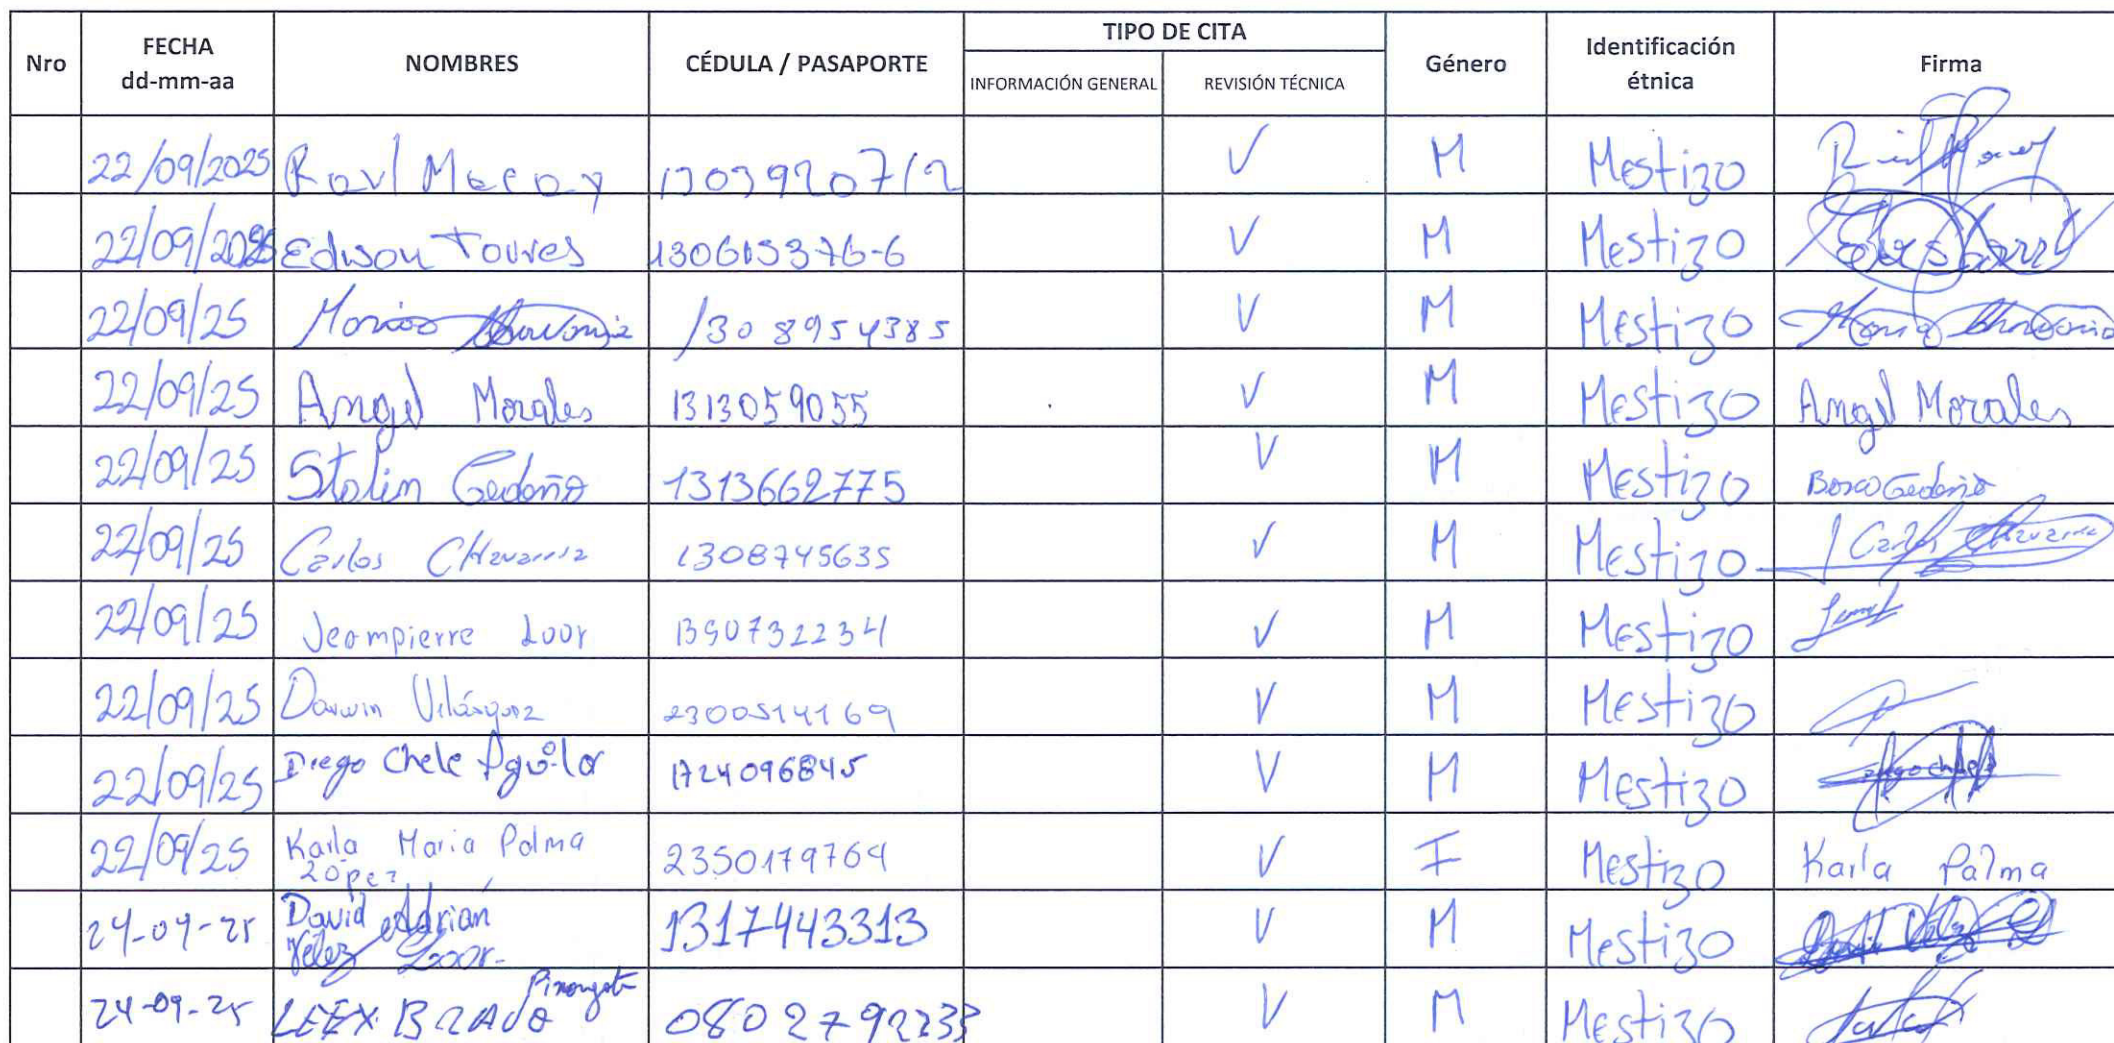 Nro FECHA dd-mm-aa NOMBRES CÉDULA / PASAPORTE TIPO DE CITA INFORMACIÓN GENERAL REVISIÓN TÉCNICA Género Identificación étnica Firma
22/09/2025 Raul Macay ✓ M Mestizo
22/09/2025 Edison Torres 130615376-6 ✓ M Mestizo
22/09/25 1308954385 ✓ M Mestizo
22/09/25 Angel Morales 1313059055 ✓ M Mestizo Angel Morales
22/09/25 Stalin Cedeño 1313662775 ✓ M Mestizo Bosco Cedeño
22/09/25 Carlos Chavarria 1308745635 ✓ M Mestizo Carlos Chavarria
22/09/25 Jeampierre Loor ✓ M Mestizo
22/09/25 Darwin Velásquez 2300514169 ✓ M Mestizo
22/09/25 Diego Chele Aguilar 1724096845 ✓ M Mestizo
22/09/25 Karla Maria Palma 2350179764 ✓ F Mestizo Karla Palma
López
24-09-25 David Adrián 1317443313 ✓ M Mestizo
Vélez Loor.
24-09-25 LEEX BRAVO 0802792233 ✓ M Mestizo